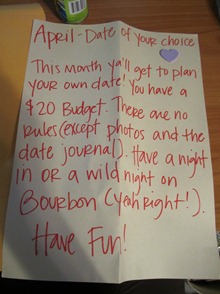 April-Date of your choice
This Month ya'll get to plan
your own date! You have a
$20 Budget. There are no
Rules(except photos and the
date journal). Have a night
in or a wild night on
Bourbon (yeah Right!).
Have Fun!